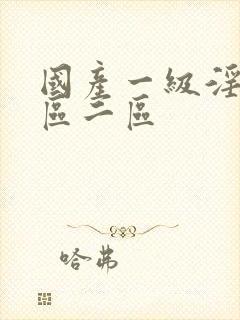 國產一級淫
區二區
哈弗